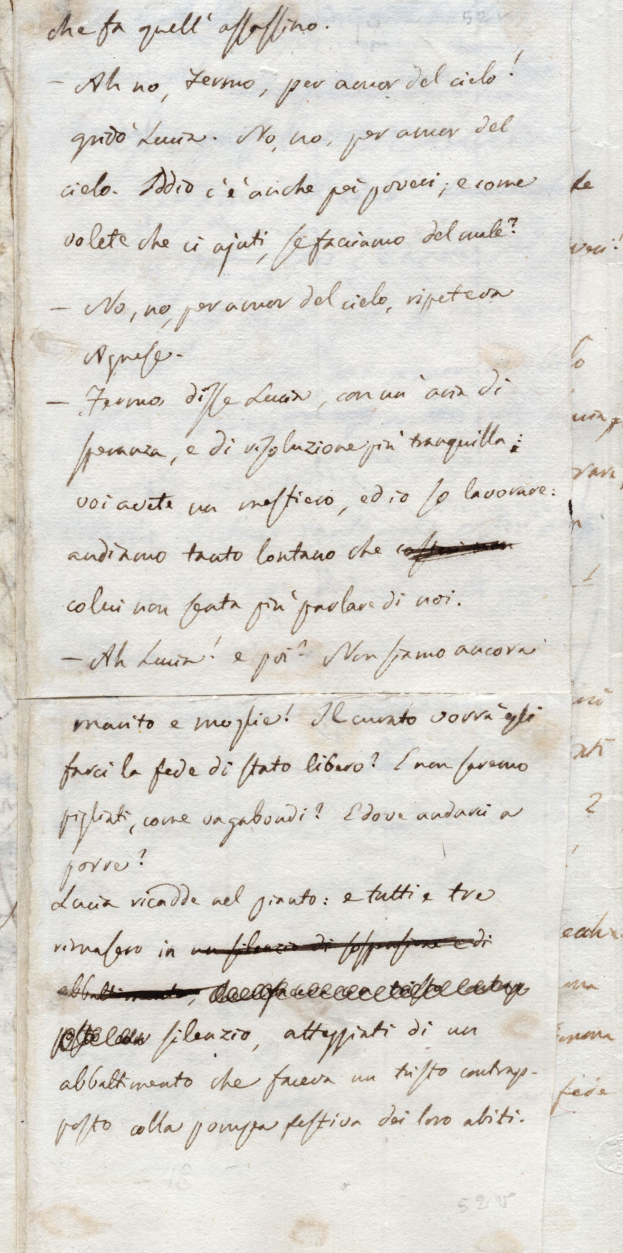 che fa quell' assassino.
— Ah no, Fermo, per amor del cielo!
gridò Lucia. No, no, per amor del
cielo. Iddio c'è anche pei poveri; e come
volete che ci ajuti, se facciamo del male?
— No, no, per amor del cielo, ripeteva
Agnese.
— Fermo, disse Lucia, con un' aria di
speranza, e di risoluzione più tranquilla:
voi avete un mestiero, ed io so lavorare:
andiamo tanto lontano che
colui non senta più parlare di noi.
— Ah Lucia! e poi? Non siamo ancora
marito e moglie! Il curato vorrà egli
farci la fede di stato libero? E non saremo
pigliati, come vagabondi? E dove andarci a
porre?
Lucia ricadde nel pianto: e tutti e tre
rimasero in un silenzio di sospensione e di
abbattimento,
silenzio, atteggiati di un
abbattimento che faceva un tristo contrap-
posto colla pompa festiva dei loro abiti.
52 v